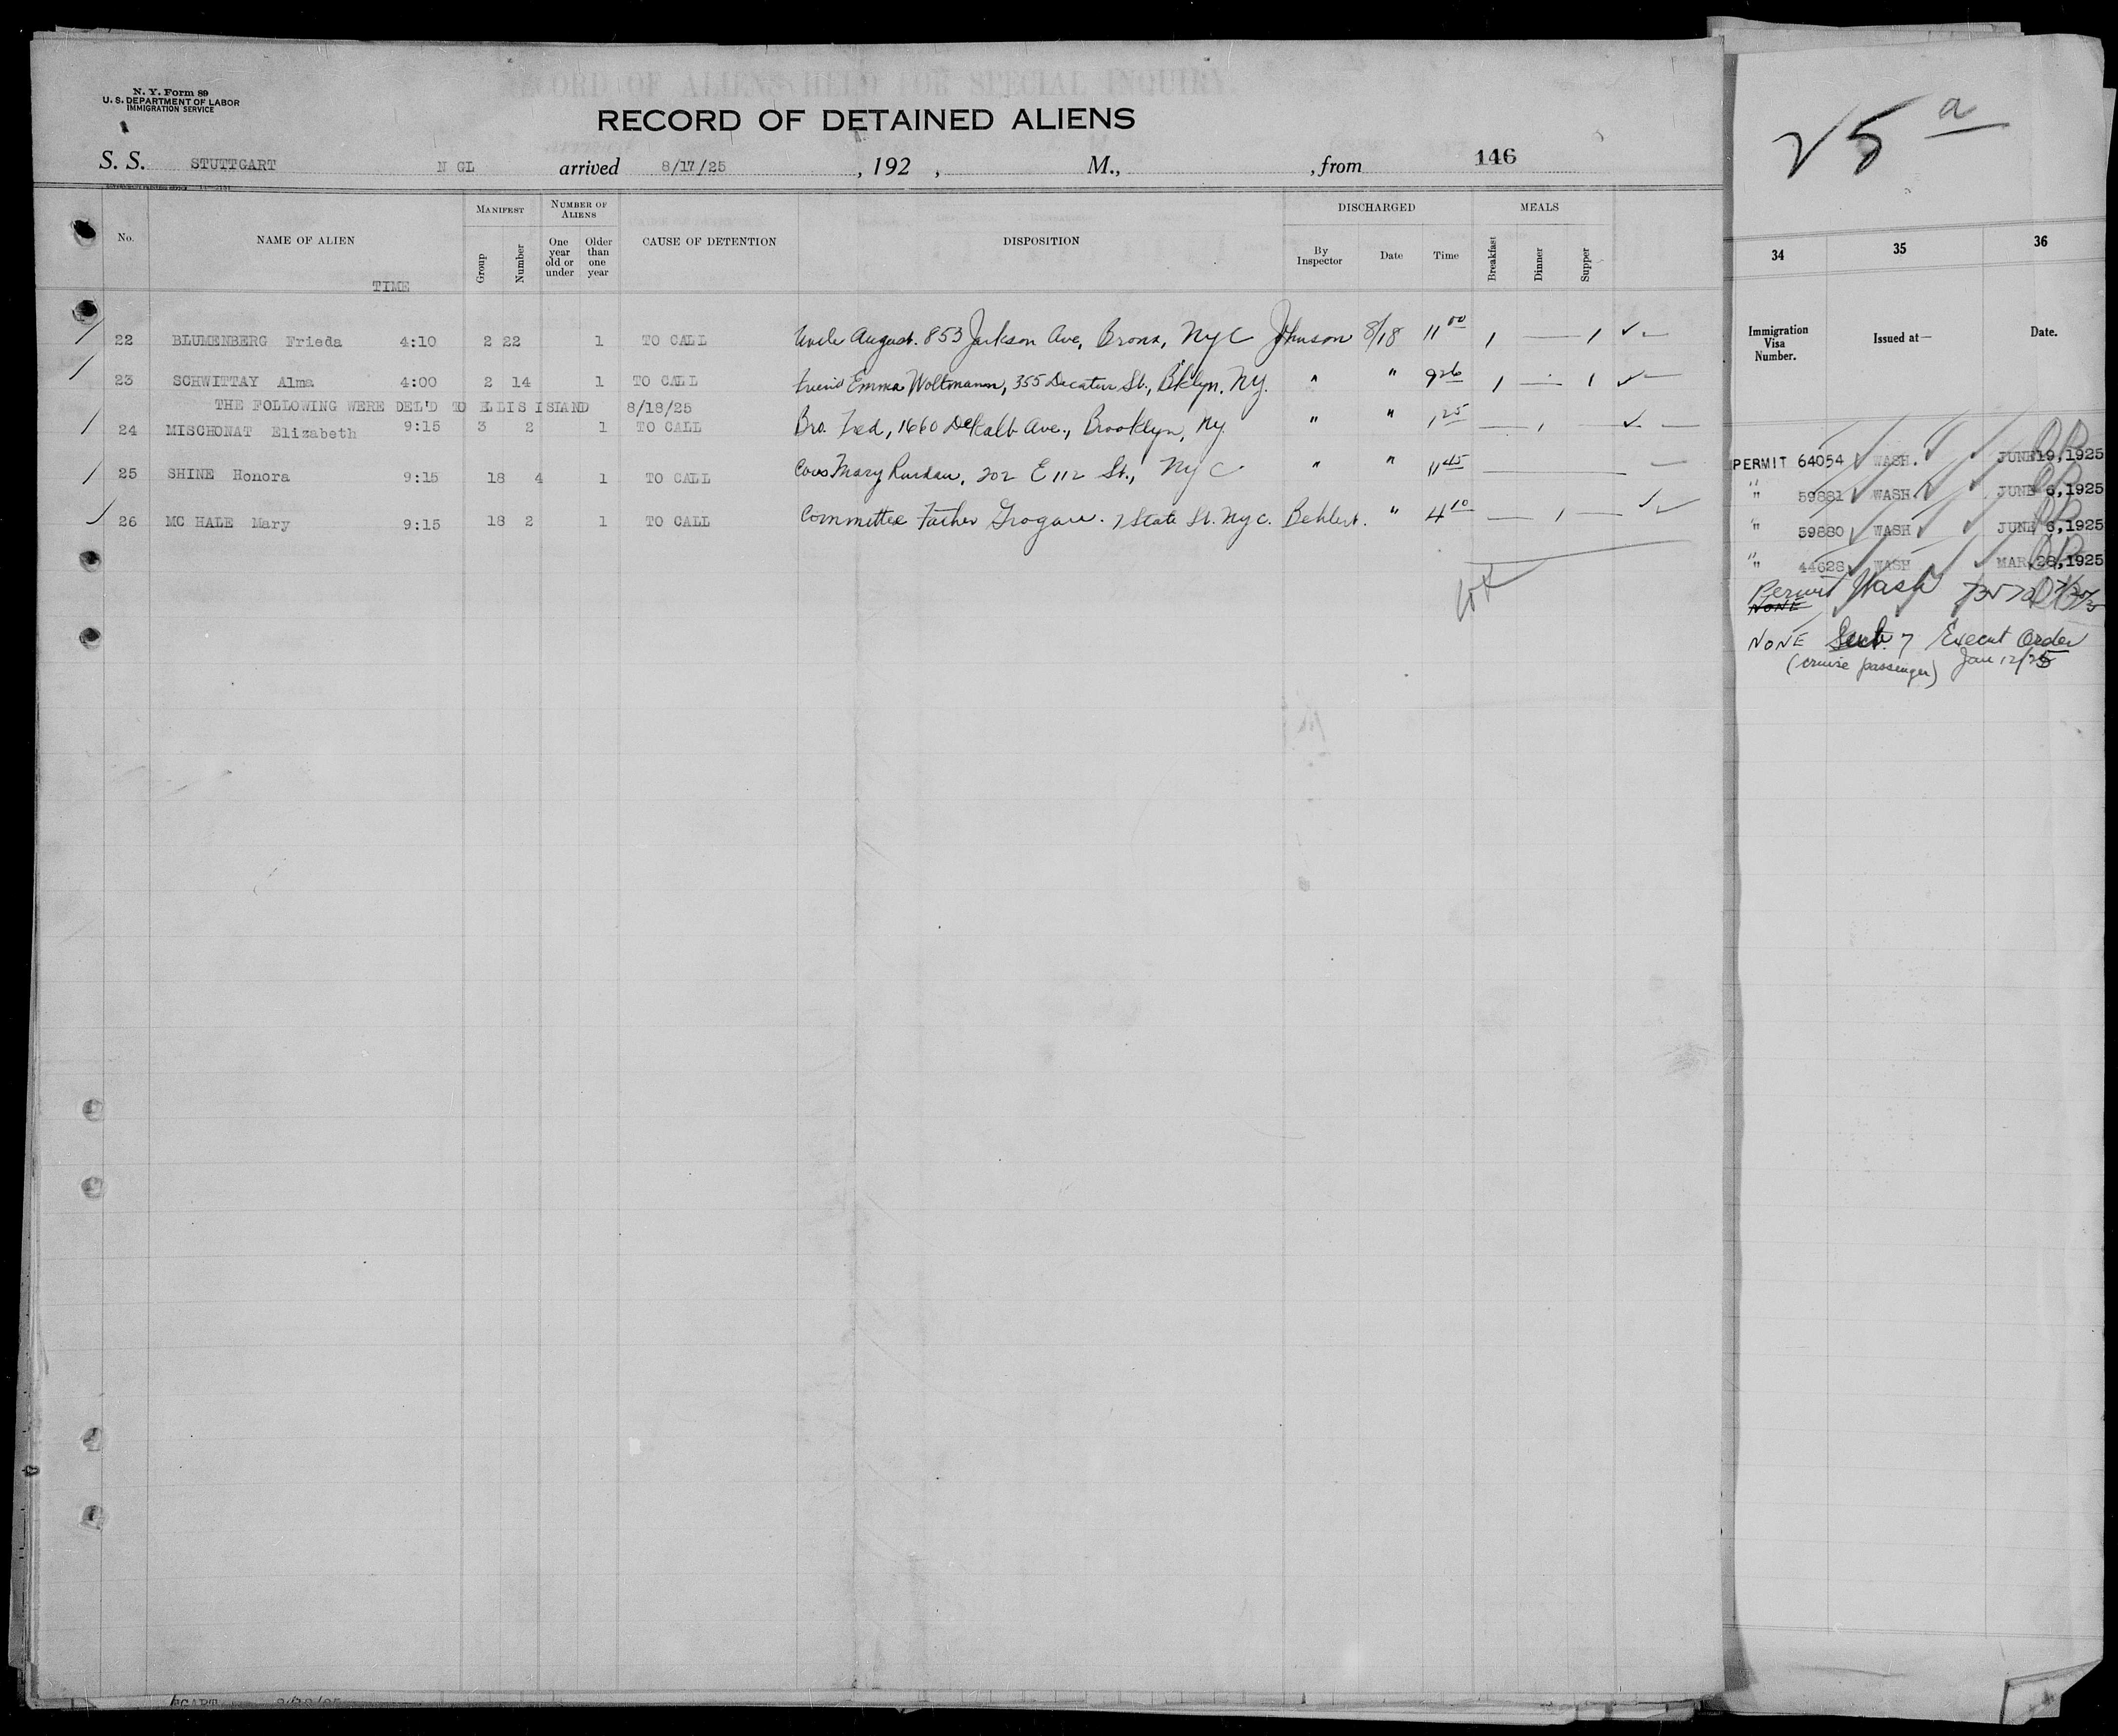 N. Y. Form 89
U. S. DEPARTMENT OF LABOR
IMMIGRATION SERVICE
RECORD OF ALIENS HELD FOR SPECIAL INQUIRY
RECORD OF DETAINED ALIENS
S. S. STUTTGART N GL arrived 8/17/25 , 192 , M., , from 146
No. NAME OF ALIEN TIME MANIFEST Group Number NUMBER OF ALIENS One year old or under Older than one year CAUSE OF DETENTION DISPOSITION DISCHARGED By Inspector Date Time MEALS Breakfast Dinner Supper
22 BLUMENBERG Frieda 4:10 2 22 1 TO CALL Uncle August. 853 Jackson Ave, Bronx, NYC Johnson 8/18 11 00 1 — 1 ✓ —
23 SCHWITTAY Alma 4:00 2 14 1 TO CALL Friend Emma Woltmann, 355 Decatur St., Bklyn. NY. " " 9 26 1 — 1 ✓ —
THE FOLLOWING WERE DEL'D TO ELLIS ISLAND 8/18/25
24 MISCHONAT Elizabeth 9:15 3 2 1 TO CALL Bro. Fred, 1660 DeKalb Ave., Brooklyn, Ny. " " 1 25 — 1 — ✓ —
25 SHINE Honora 9:15 18 4 1 TO CALL Cous Mary, 202 E 112 St., NYC " " 11 45 —
26 MC HALE Mary 9:15 18 2 1 TO CALL Committee Father Grogan. 7 State St. Nyc. Behlert. " 4 10 — 1 — ✓ ✓
25 a
34 35 36
Immigration Visa Number. Issued at— Date.
PERMIT 64054 WASH. JUNE 19, 1925
" 59881 WASH JUNE 6, 1925
" 59880 WASH JUNE 6, 1925
" 44628 WASH MAR. 28, 1925
Permit Wash
NONE
NONE Sect. 7 Execut Order
(cruise passenger) Jan 12/25